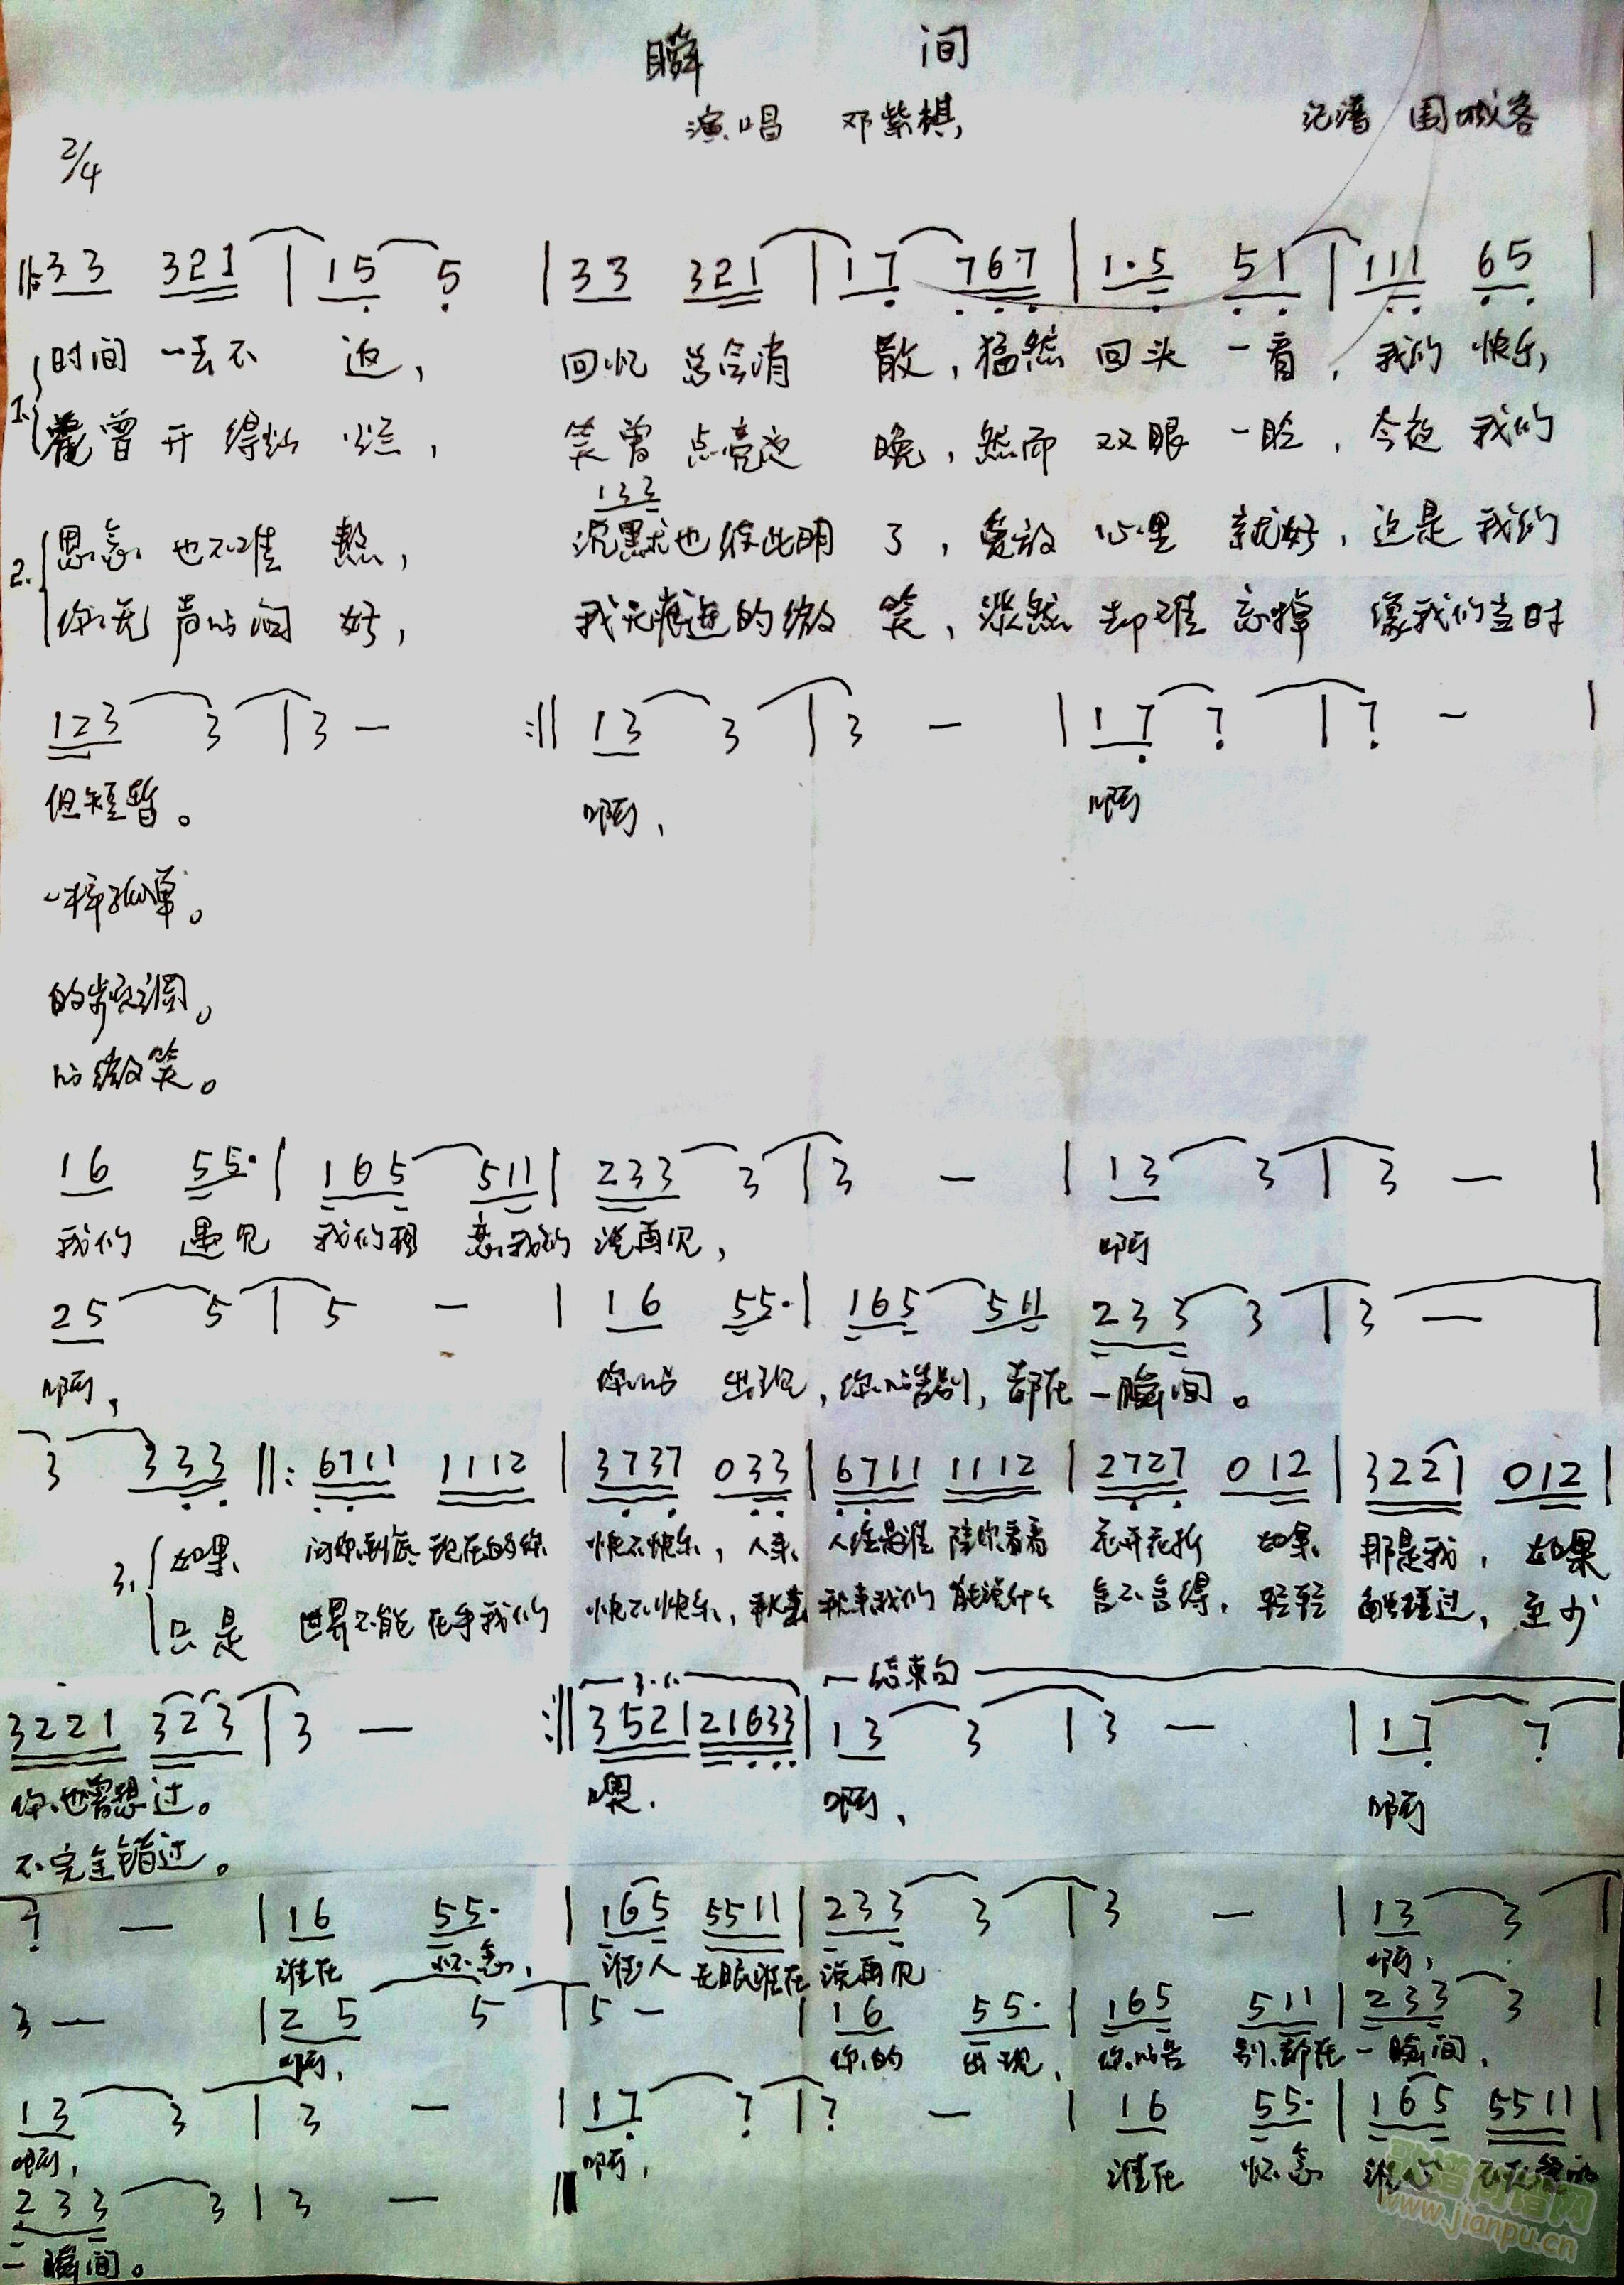 瞬 间
演唱 邓紫棋 记谱 围城客
2/4
‖:33 321 | 15 5 | 33 321 | 17 767 | 1·5 51 | 111 65 |
1. 时间 一去不 返, 回忆 总会消 散,猛然 回头 一看,我的 快乐,
曾 开 得灿 烂, 笑曾 点亮夜 晚,然而 双眼 一眨,今夜 我的
133
2. 思念 也不难 熬, 沉默也彼此明 了,爱放 心里 就好,这是 我们
你无 声的问 好, 我无痕迹的微 笑,淡然 却难 忘掉 像我们当时
123 3 | 3 — :‖ 13 3 | 3 — | 17 7 | 7 — |
但短暂。 啊, 啊
一样孤单。
的步调。
的微笑。
16 55· | 165 511 | 233 3 | 3 — | 13 3 | 3 — |
我们 遇见 我们相 恋我们 说再见, 啊
25 5 | 5 — | 16 55· | 165 511 233 3 | 3 — |
啊, 你的 出现,你的告别,都在 一瞬间。
3 333 ‖: 6711 1112 | 3737 033 | 6711 1112 | 2727 012 | 3221 012 |
3. 如果 问你到底 现在的你 快不快乐,人来 人往是谁 陪你看看 花开花折 如果 那是我,如果
只是 世界不能 在乎我们 快不快乐,秋来 我们 能说什么 舍不舍得,轻轻 过,至少
3221 323 | 3 — :‖ 3521 21633 | 13 3 | 3 — | 17 7 |
3. 结束句
你也曾想过。 噢. 啊, 啊
不完全错过。
7 — | 16 55· | 165 5511 | 233 3 | 3 — | 13 3 |
谁在 怀念, 谁人 无眠谁在 说再见 啊,
3 — | 25 5 | 5 — | 16 55· | 165 511 | 233 3 |
啊, 你的 出现, 你的告 别,都在 一瞬间,
13 3 | 3 — | 17 7 | 7 — | 16 55· | 165 5511 |
啊, 啊, 谁在 怀念
233 3 | 3 — ‖
一瞬间。
歌谱简谱网
www.jianpu.cn